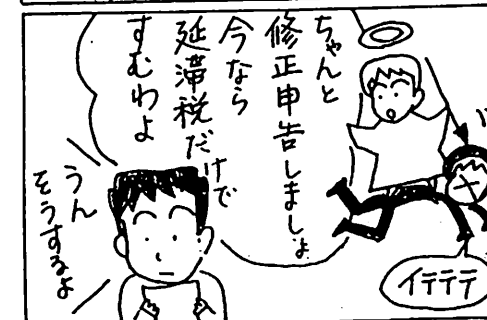 ちゃんと
修正申告しましょ
今なら
延滞税だけで
すむわよ
うん
そうするよ
イテテテ